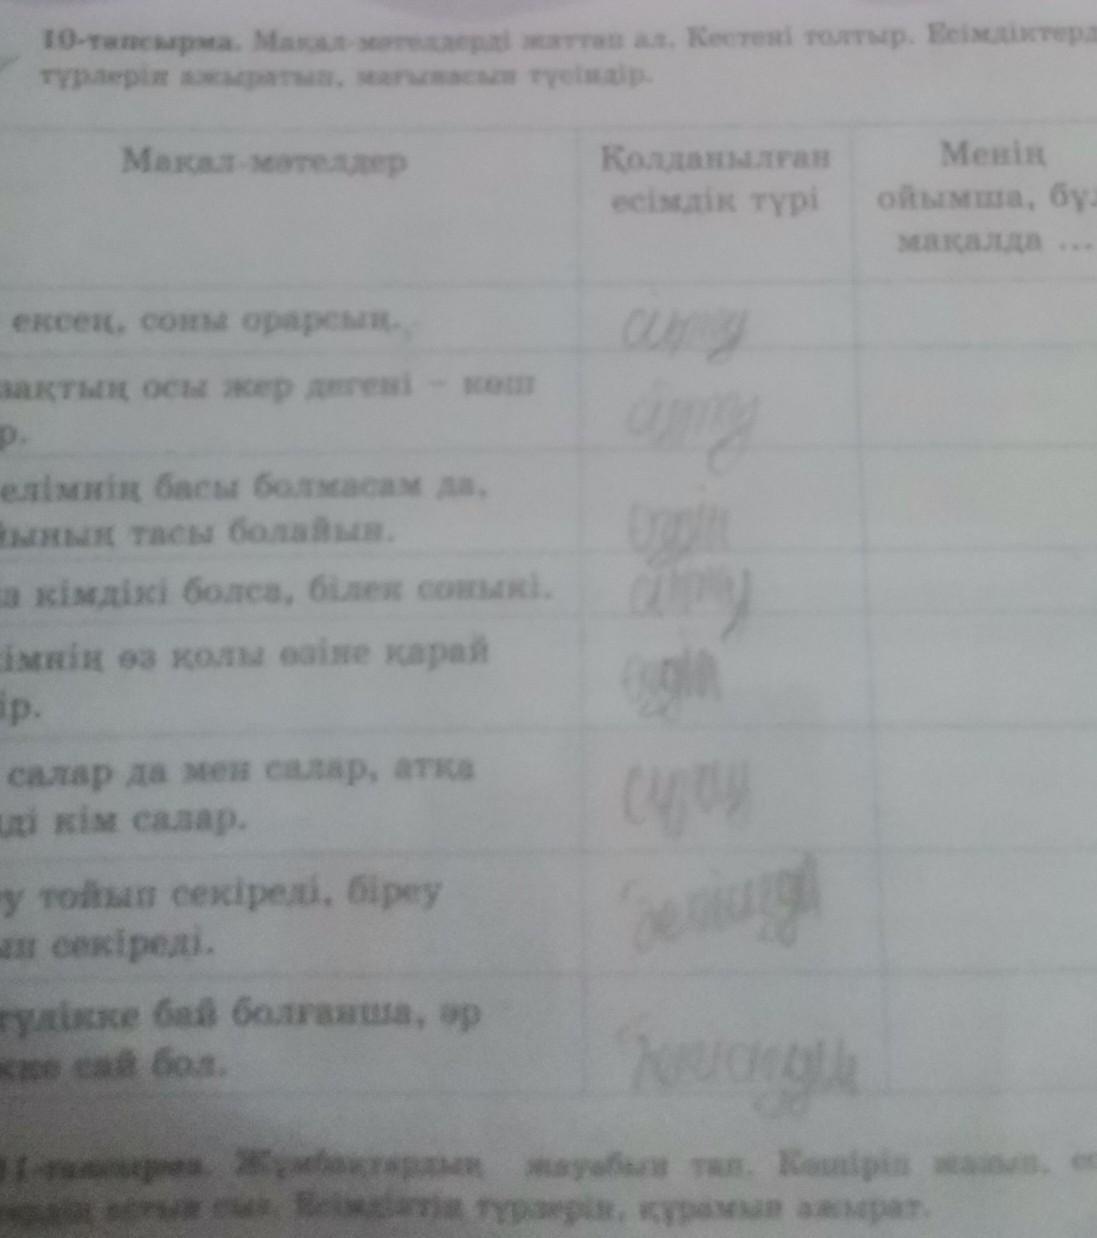 10-тапсырма. Мақал-мәтелдерді жаттап ал. Кестені толтыр. Есімдіктерд
түрлерін ажыратып, мағынасын түсіндір.
Мақал-мәтелдер
Қолданылған
есімдік түрі
Менің
ойымша, бұл
мақалда ...
ексең, соны орарсың.
сілтеу
зақтың осы жер дегені – көш
р.
сілтеу
елімнің басы болмасам да,
йының тасы болайын.
өздік
а кімдікі болса, білек сонікі.
сілтеу
імнің өз қолы өзіне қарай
ір.
өздік
салар да мен салар, атқа
ді кім салар.
сұрау
у тойып секіреді, біреу
ып секіреді.
белгісіздік
түлікке бай болғанша, әр
кке сай бол.
11-тапсырма. Жұмбақтардың жауабын тап. Көшіріп жазып, ес
астын сыз. Есімдіктің түрлерін, құрамын ажырат.